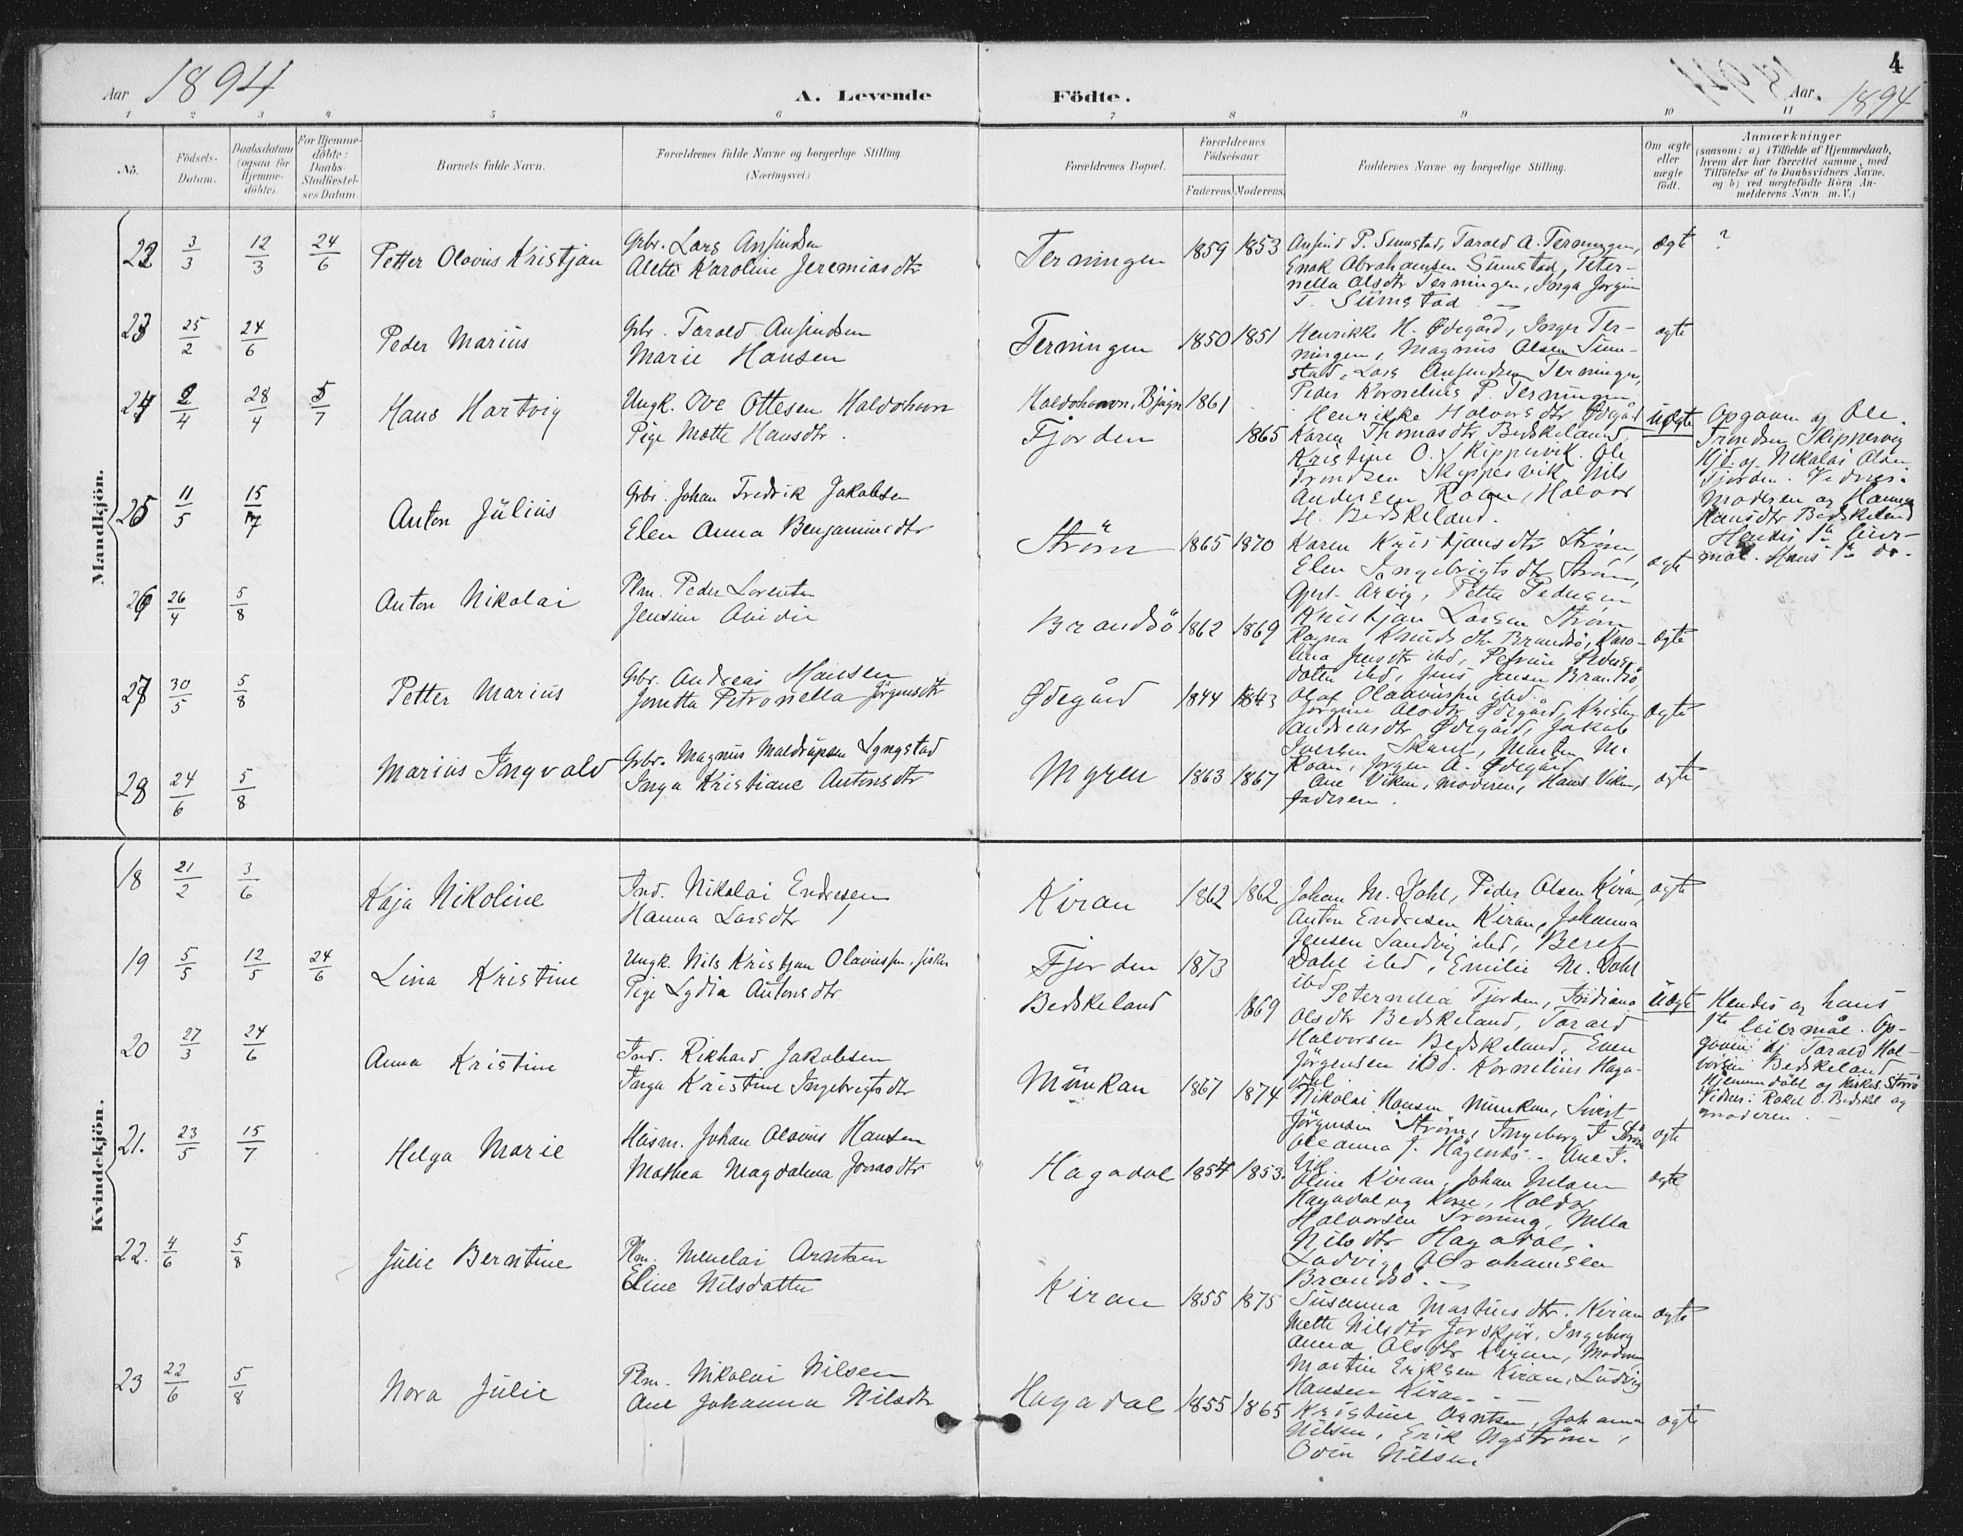 Aar 1894
A. Levende Födte.
Aar 1894
4
1 2 3 4 5 6 7 8 9 10 11
No.
Födsels-
Datum.
Daabsdatum
(ogsaa for
Hjemme-
döbte).
For Hjemme-
döbte:
Daabs-
Stadfæstel-
ses Datum.
Barnets fulde Navn.
Forældrenes fulde Navne og borgerlige Stilling.
(Næringsvei.)
Forældrenes Bopæl.
Forældrenes
Födselsaar.
Faderens. Moderens.
Faddernes Navne og borgerlige Stilling.
Om ægte
eller
uægte
födt.
Anmærkninger
(saasom: a) i Tilfælde af Hjemmedaab,
hvem der har forrettet samme, med
Tilföielse af to Daabsvidners Navne,
og b) ved uægtefödte Börn An-
melderens Navn m. V.)
Mandkjön.
22 3/3 12/3 24/6 Petter Olavius Kristjan
Grbr. Lars Ansindsen
Alette Karoline Jeremiasdtr
Terningen 1859 1853
Ansind P. Sumstad, Tarald A. Terningen,
Enok Abrahamsen Sumstad, Peter-
nella Olsdtr Terningen, Inga Jorgine
T. Sumstad
ægte ?
23 25/2 24/6 Peder Marius
Grbr. Tarald Ansindsen
Marie Hansen
Terningen 1850 1851
Henrikke H. Ødegård, Inger Ter-
ningen, Magnus Olsen Sum-
stad, Lars Ansindsen Terningen,
Peder Kornelius P. Terningen
ægte
24 2/4 28/4 5/7 Hans Hartvig
Ungk. Ove Ottesen Haldohavn
Pige Mette Hansdtr.
Haldohavn, Bjugn 1861
Fjorden 1865
Henrikke Halvorsdtr Ødegård
Karen Thomasdtr Bedskeland
Kristine O. Skippervik. Ole
Trondsen Skippervik Nils
Andersen Roan, Halvor
H. Bedskeland.
uægte
Opgaven af Ole
Trondsen Skippervig
Hjd. af Nikolai Olsen
Fjorden. Vidner:
Moderen og Hanna
Hansdtr Bedskeland
Hendes 1te leier-
mål. Hans 1te do.
25 11/5 15/7 Anton Julius
Grbr. Johan Fredrik Jakobsen
Elen Anna Benjaminsdtr
Strøm 1865 1870
Karen Kristjansdtr Strøm,
Elen Ingebrigtsdtr Strøm,
Gjert Arvig, Petter Pedersen
Kristjan Larsen Strøm
ægte
26 26/4 5/8 Anton Nikolai
Plm. Peder Lorentsen
Jensine
Brandsö 1862 1869
Ragna Knudsdtr Brandsö, Karo-
lina Jensdtr ibd, Petrine Peders-
datter ibd, Jens Jensen Brandsö,
Olaf Olavinssen ibd
ægte
27 30/5 5/8 Petter Marius
Grbr. Andreas Hansen
Jonetta Petronella Jörgensdtr
Ødegård 1844 1843
Jörgine Olsdtr Ødegård, Kristine
Andreasdtr Ødegård, Jakob
Iversen Skaret, Morten M.
Roan, Jorgen A. Ødegård
ægte
28 24/6 5/8 Marius Ingvald
Grbr. Magnus Meldrupsen Lyngstad
Inga Kristiane Antonsdtr
Myren 1863 1867
Ane Viken, Moderen, Hans Viken,
Faderen.
ægte
Kvindekjön.
18 21/2 3/6 Kaja Nikoline
Ind. Nikolai Endresen
Hanna Larsdtr
Kiran 1862 1862
Johan M. Dahl, Peder Olsen Kiran,
Anton Endresen Kiran, Johanna
Jensen Sandvig ibd, Beret
Dahl ibd, Emilie M. Dahl
ibd
ægte
19 5/5 12/5 24/6 Lina Kristine
Ungk. Nils Kristjan Olavussen, fisker
Pige Lydia Antonsdtr
Fjorden 1873
Bedskeland 1869
Peternella Fjorden, Fridiana
Olsdtr Bedskeland, Tarald
Halvorsen Bedskeland, Even
Jörgensen ibd. Kornelius Haga-
dal
uægte
Hendes og hans
1te leiermål. Op-
gaven af Tarald Hal-
vorsen Bedskeland
Hjemmedöbt af Kirkes. Storrö
Vidner: Rakel O. Bedskel og
moderen.
20 27/3 24/6 Anna Kristine
Ind. Rikhard Jakobsen
Inga Kristine Ingebrigtsdtr
Munkan 1867 1874
Nikolai Hansen Munkan, Sivert
Jörgensen Strøm, Ingeborg J. Strøm
Oleanna J. Hagenes. Ane J.
ægte
21. 23/5 15/7 Helga Marie
Husm. Johan Olavus Hansen
Mathea Magdalena Jonasdtr
Hagadal 1854 1853.
Oline Kiran, Johan Nilsen
Hagadal og Kone, Haldor
Halvorsen Troning, Nella
Nilsdtr Hagadal,
Ludvig Abrahamsen
Brandsö.
ægte
22. 4/6 5/8 Julie Berntine
Plm. Menelai Arntsen
Eline Nilsdatter
Kiran 1855 1875
Susanna Martinsdtr. Kiran
Mette Nilsdtr Terskjær, Ingeborg
Anna Olsdtr Kiran, Moderen
Martin Eriksen Kiran, Ludvig
Hansen Kiran
ægte
23 22/6 5/8 Nora Julie
Plm. Nikolai Nilsen
Ane Johanna Nilsdtr
Hagadal 1855 1865
Kristine Arntsen, Johanna
Nilsen, Erik Nyström,
Odin Nilsen
ægte